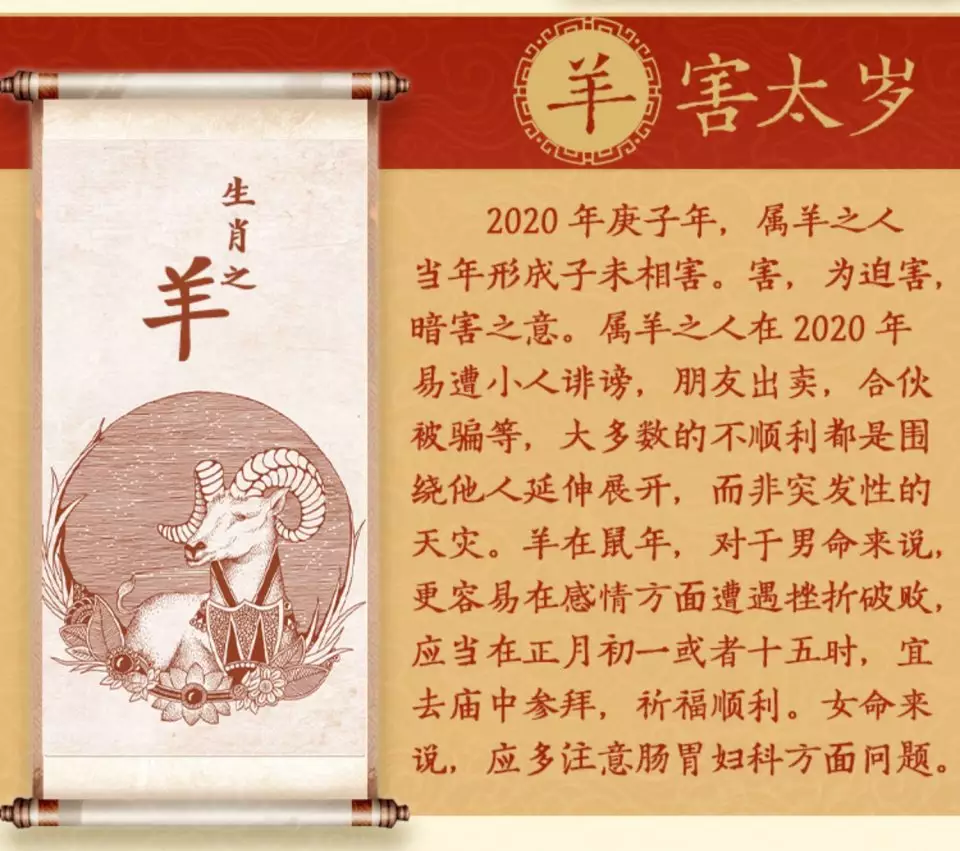 羊 害太岁
生肖之
羊
2020 年庚子年，属羊之人
当年形成子未相害。害，为迫害，
暗害之意。属羊之人在 2020 年
易遭小人诽谤，朋友出卖，合伙
被骗等，大多数的不顺利都是围
绕他人延伸展开，而非突发性的
天灾。羊在鼠年，对于男命来说，
更容易在感情方面遭遇挫折破败，
应当在正月初一或者十五时，宜
去庙中参拜，祈福顺利。女命来
说，应多注意肠胃妇科方面问题。